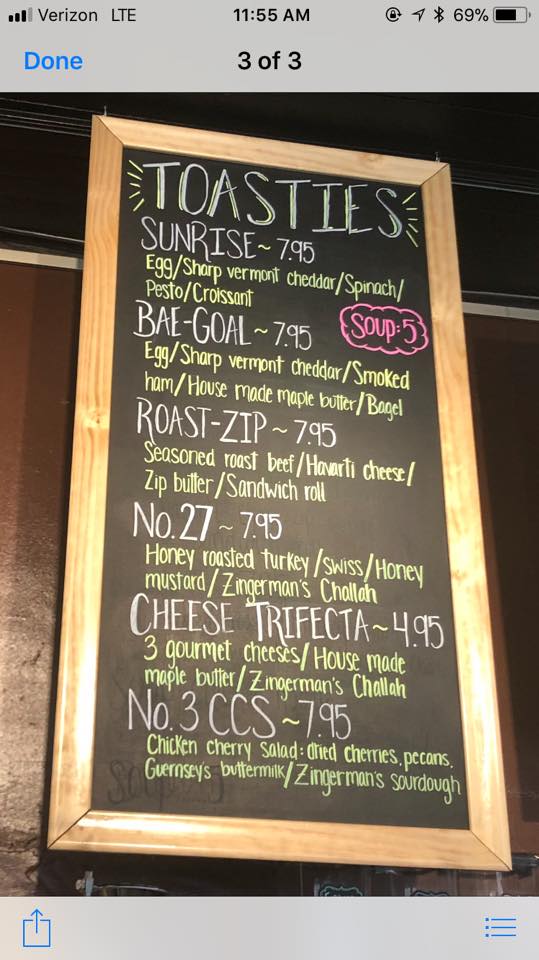 Verizon LTE 11:55 AM 69%
Done 3 of 3
TOASTIES
SUNRISE~7.95
Egg/Sharp vermont cheddar/Spinach/
Pesto/Croissant
SOUP:5
BAE-GOAL~7.95
Egg/Sharp vermont cheddar/Smoked
ham/House made maple butter/Bagel
ROAST-ZIP~7.95
Seasoned roast beef/Havarti cheese/
Zip butter/Sandwich roll
No.27~7.95
Honey roasted turkey/swiss/Honey
mustard/Zingerman's Challah
CHEESE TRIFECTA~4.95
3 gourmet cheeses/House made
maple butter/Zingerman's Challah
No.3 CCS~7.95
Chicken cherry salad:dried cherries,pecans,
Guernsey's buttermilk/Zingerman's sourdough